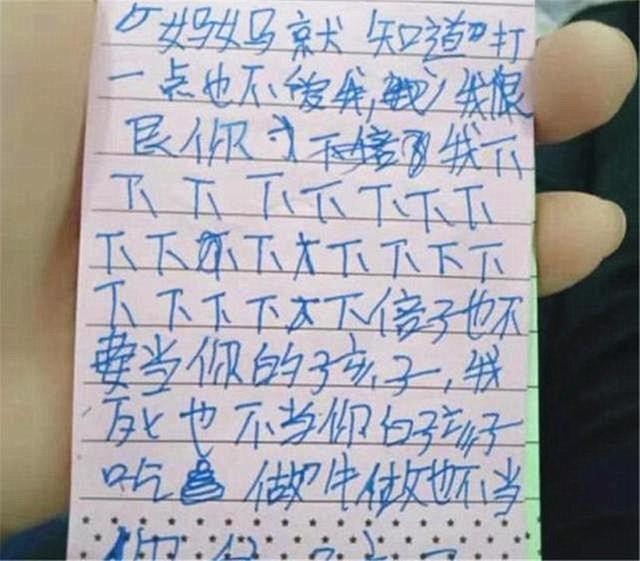 妈妈就知道打
一点也不爱我，我恨
你 我下
下下下下下下下
下下下下下下下
下下下下下倍子也不
要当你的孩子，我
死也不当你的孩子
吃 做牛做也不当